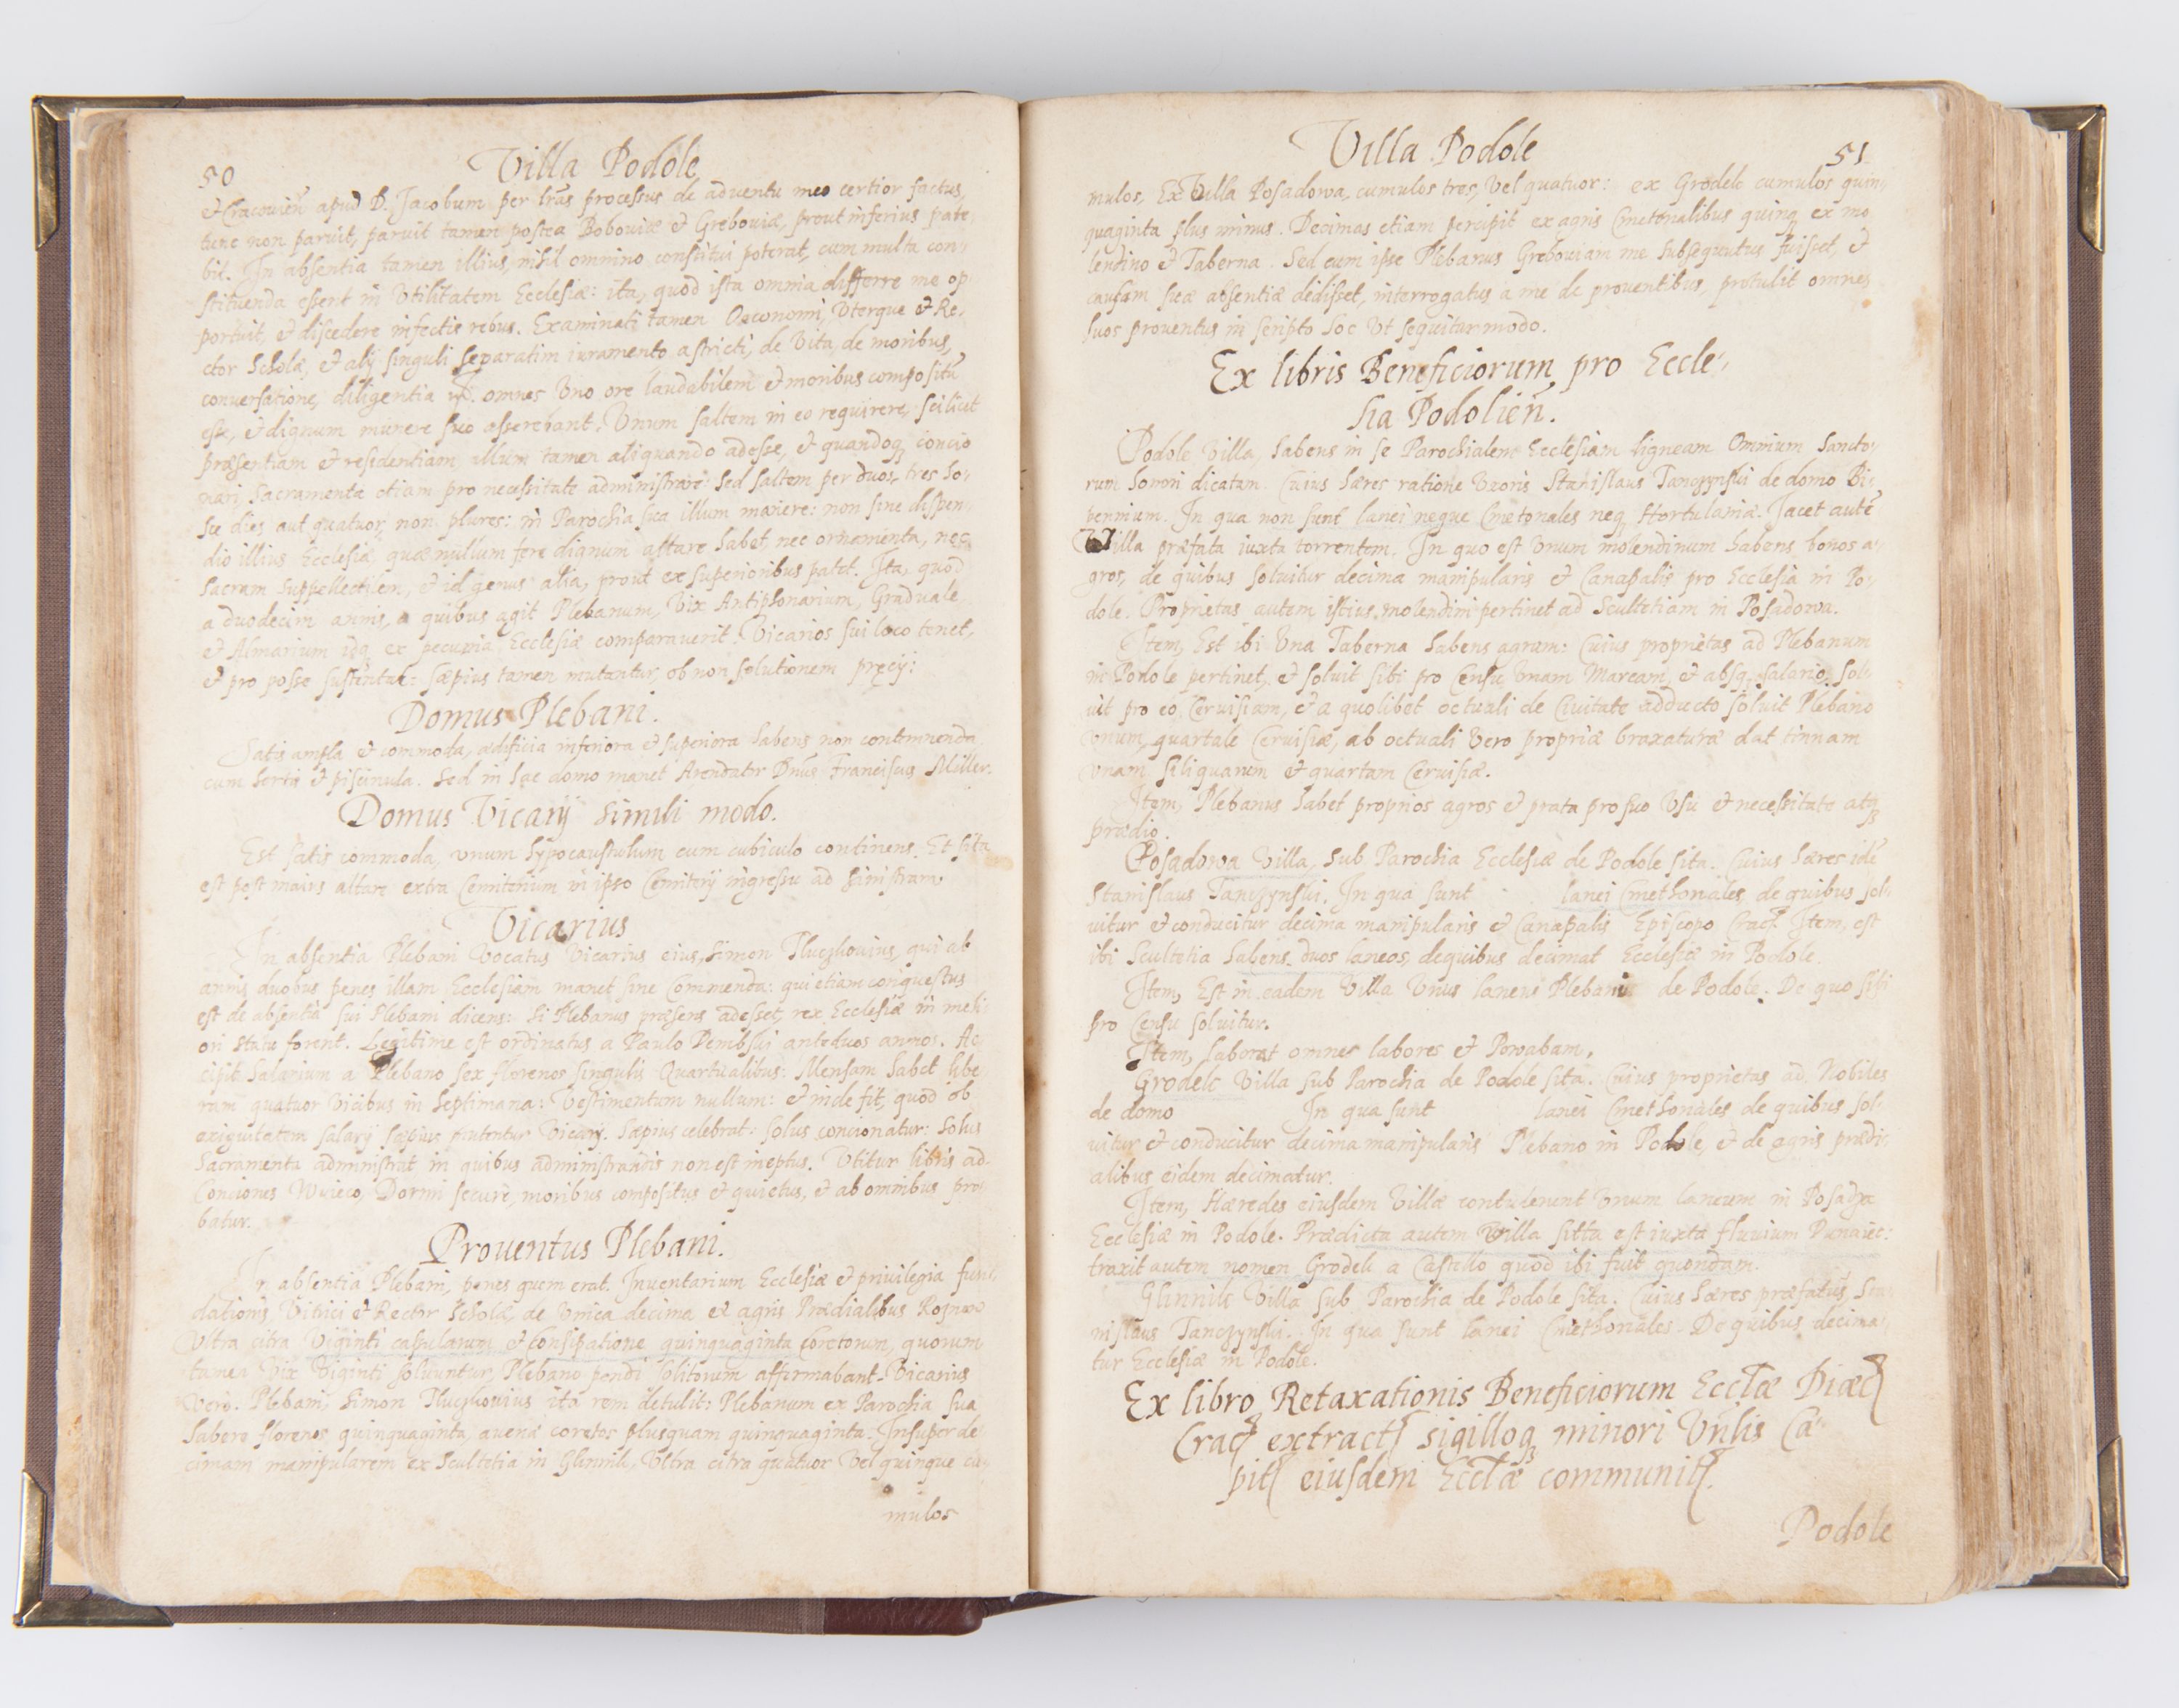 50
Villa Podole
et Cracovień apud D. Jacobum per lrãs processus de adventu meo certior factus,
tunc non paruit, paruit tamen postea Boboviæ et Greboviæ, prout inferius pate,
bit. In absentia tamen illius, nihil omnino constitui poterat, cum multa con,
stituenda essent in Vtilitatem Ecclesiæ: ita, quod ista omnia differre me op,
portuit, et discedere infectis rebus. Examinati tamen Oeconomi, Vterque et Re,
ctor Scholæ, et alij singuli separatim iuramento astricti, de Vita, de moribus,
conversatione, diligentia omnes Vno ore laudabilem et moribus compositũ
esse, et dignum munere suo asserebant. Vnum saltem in eo requirere, scilicet
præsentiam et residentiam, illum tamen aliquando adesse, et quandoq concio
nari, Sacramenta etiam pro necessitate administrare: sed saltem per duos, tres ho,
sce dies aut quatuor, non plures: in Parochia sua illum manere: non sine dispen,
dio illius Ecclesiæ, quæ nullum fere dignum altare habet, nec ornamenta, nec
sacram Suppellectilem, et id genus alia, prout ex superioribus patet. Ita, quod
a duodecim annis, a quibus agit Plebanum, Vix Antiphonarium, Graduale
et Almarium idq ex pecunia Ecclesiæ comparaverit. Vicarios sui loco tenet,
et pro posse sustentat: sæpius tamen mutantur, ob non solutionem precij:
Domus Plebani.
Satis ampla et commoda, ædificia inferiora et superiora habens non contemnenda
cum hortis et piscinula. Sed in hac domo manet Arendator Dñus Franciscus Miller.
Domus Vicarij simili modo.
Est satis commoda, vnum hypocaustulum cum cubiculo continens. Et sita
est post maius altare extra Cemiterium in ipso Cemiterij ingressu ad sinistram
Vicarius
In absentia Plebani Vocatus Vicarius eius, Simon Tluczkovius, qui ab
annis duobus penes illam Ecclesiam manet sine Commenda: qui etiam conquestus
est de absentia sui Plebani dicens: Si Plebanus præsens adesset, res Ecclesiæ in meli
ori statu forent. Legitime est ordinatus a Paulo Dembski ante duos annos. Ac,
cipit Salarium a Plebano sex florenos singulis Quartualibus: Mensam habet libe,
ram quatuor Vicibus in Septimana: Vestimentum nullum: et inde fit, quod ob
exiguitatem salarij sæpius mutentur Vicarij. Sæpius celebrat: solus concionatur: solus
Sacramenta administrat in quibus administrandis non est ineptus. Vtitur libris ad
Conciones Wuieco, Dormi secure, moribus compositus et quietus, et ab omnibus pro,
batur.
Proventus Plebani.
In absentia Plebani, penes quem erat Inventarium Ecclesiæ et privilegia fun,
dationis, Vitrici et Rector Scholæ, de Vnica decima ex agris Prædialibus Roznow
Vltra citra Viginti capularum et consipatione quinquaginta coretorum, quorum
tamen Vix Viginti solvuntur, Plebano pendi solitorum affirmabant. Vicarius
Vero Plebani, Simon Tluczkovius ita rem detulit: Plebanum ex Parochia sua
habere florenos quinquaginta, avenæ coretos plusquam quinquaginta. Insuper de
cimam manipularem ex Scultetia in Glinnik, Vltra citra quatuor Vel quinque cu,
mulos
Villa Podole
51
mulos, Ex Villa Posadowa, cumulos tres, Vel quatuor: ex Grodek cumulos quin,
quaginta plus minus. Decimas etiam percipit ex agris Cmetonalibus quinq ex mo
lendino et Taberna. Sed cum ipse Plebanus Greboviam me subsequutus fuisset, et
causam suæ absentiæ dedisset, interrogatus a me de proventibus, protulit omnes
suos proventus in scripto hoc Vt sequitur modo.
Ex libris Beneficiorum pro Eccle,
sia Podolień.
Podole Villa, habens in se Parochialem Ecclesiam ligneam Omnium Sancto,
rum honori dicatam. Cuius hæres ratione Vxoris Stanislaus Tanczynski de domo Bi,
pennium. In qua non sunt lanei neque Cmetonales neq Hortulaniæ. Jacet autẽ
Villa præfata iuxta torrentem. In quo est Vnum molendinum habens bonos a,
gros, de quibus solvitur decima manipularis et Canapalis pro Ecclesia in Po,
dole. Proprietas autem istius molendini pertinet ad Scultetiam in Posadowa.
Item, Est ibi Vna Taberna habens agrum: Cuius proprietas ad Plebanum
in Podole pertinet, et solvit sibi pro Censu Vnam Marcam, et absq salario, sol,
vit pro eo Cervisiam, et a quolibet octuali de Civitate adducto solvit Plebano
Vnum quartale Cervisiæ, ab octuali Vero propriæ braxaturæ dat tinnam
Vnam siliquarum et quartam Cervisiæ.
Item, Plebanus habet proprios agros et prata pro suo Vsu et necessitate atq
prædio.
Posadowa Villa, sub Parochia Ecclesiæ de Podole sita. Cuius hæres idẽ
Stanislaus Tanczynski. In qua sunt lanei Cmethonales, de quibus sol,
vitur et conducitur decima manipularis et Canapalis Episcopo Crac. Item, est
ibi Scultetia habens duos laneos, de quibus decimat Ecclesiæ in Podole.
Item, Est in eadem Villa Vnus laneus Plebani de Podole. De quo sibi
pro Censu solvitur.
Item, laborat omnes labores et Powabam.
Grodek Villa sub Parochia de Podole sita. Cuius proprietas ad Nobiles
de domo In qua sunt lanei Cmethonales de quibus sol,
vitur et conducitur decima manipularis Plebano in Podole, et de agris prædi,
alibus eidem decimatur.
Item, Hæredes eiusdem Villæ contulerunt Vnum laneum in Posadza
Ecclesiæ in Podole. Prædicta autem Villa sitta est iuxta fluvium Dunaiec:
traxit autem nomen Grodek a Castello quod ibi fuit quondam.
Glinnik Villa sub Parochia de Podole sita. Cuius hæres præfatus Sta,
nislaus Tanczynski. In qua sunt lanei Cmethonales. De quibus decima,
tur Ecclesiæ in Podole.
Ex libro Retaxationis Beneficiorum Ecclæ Diæc
Crac extract sigilloq minori Vnlis Ca,
pit eiusdem Ecclæ communit.
Podole